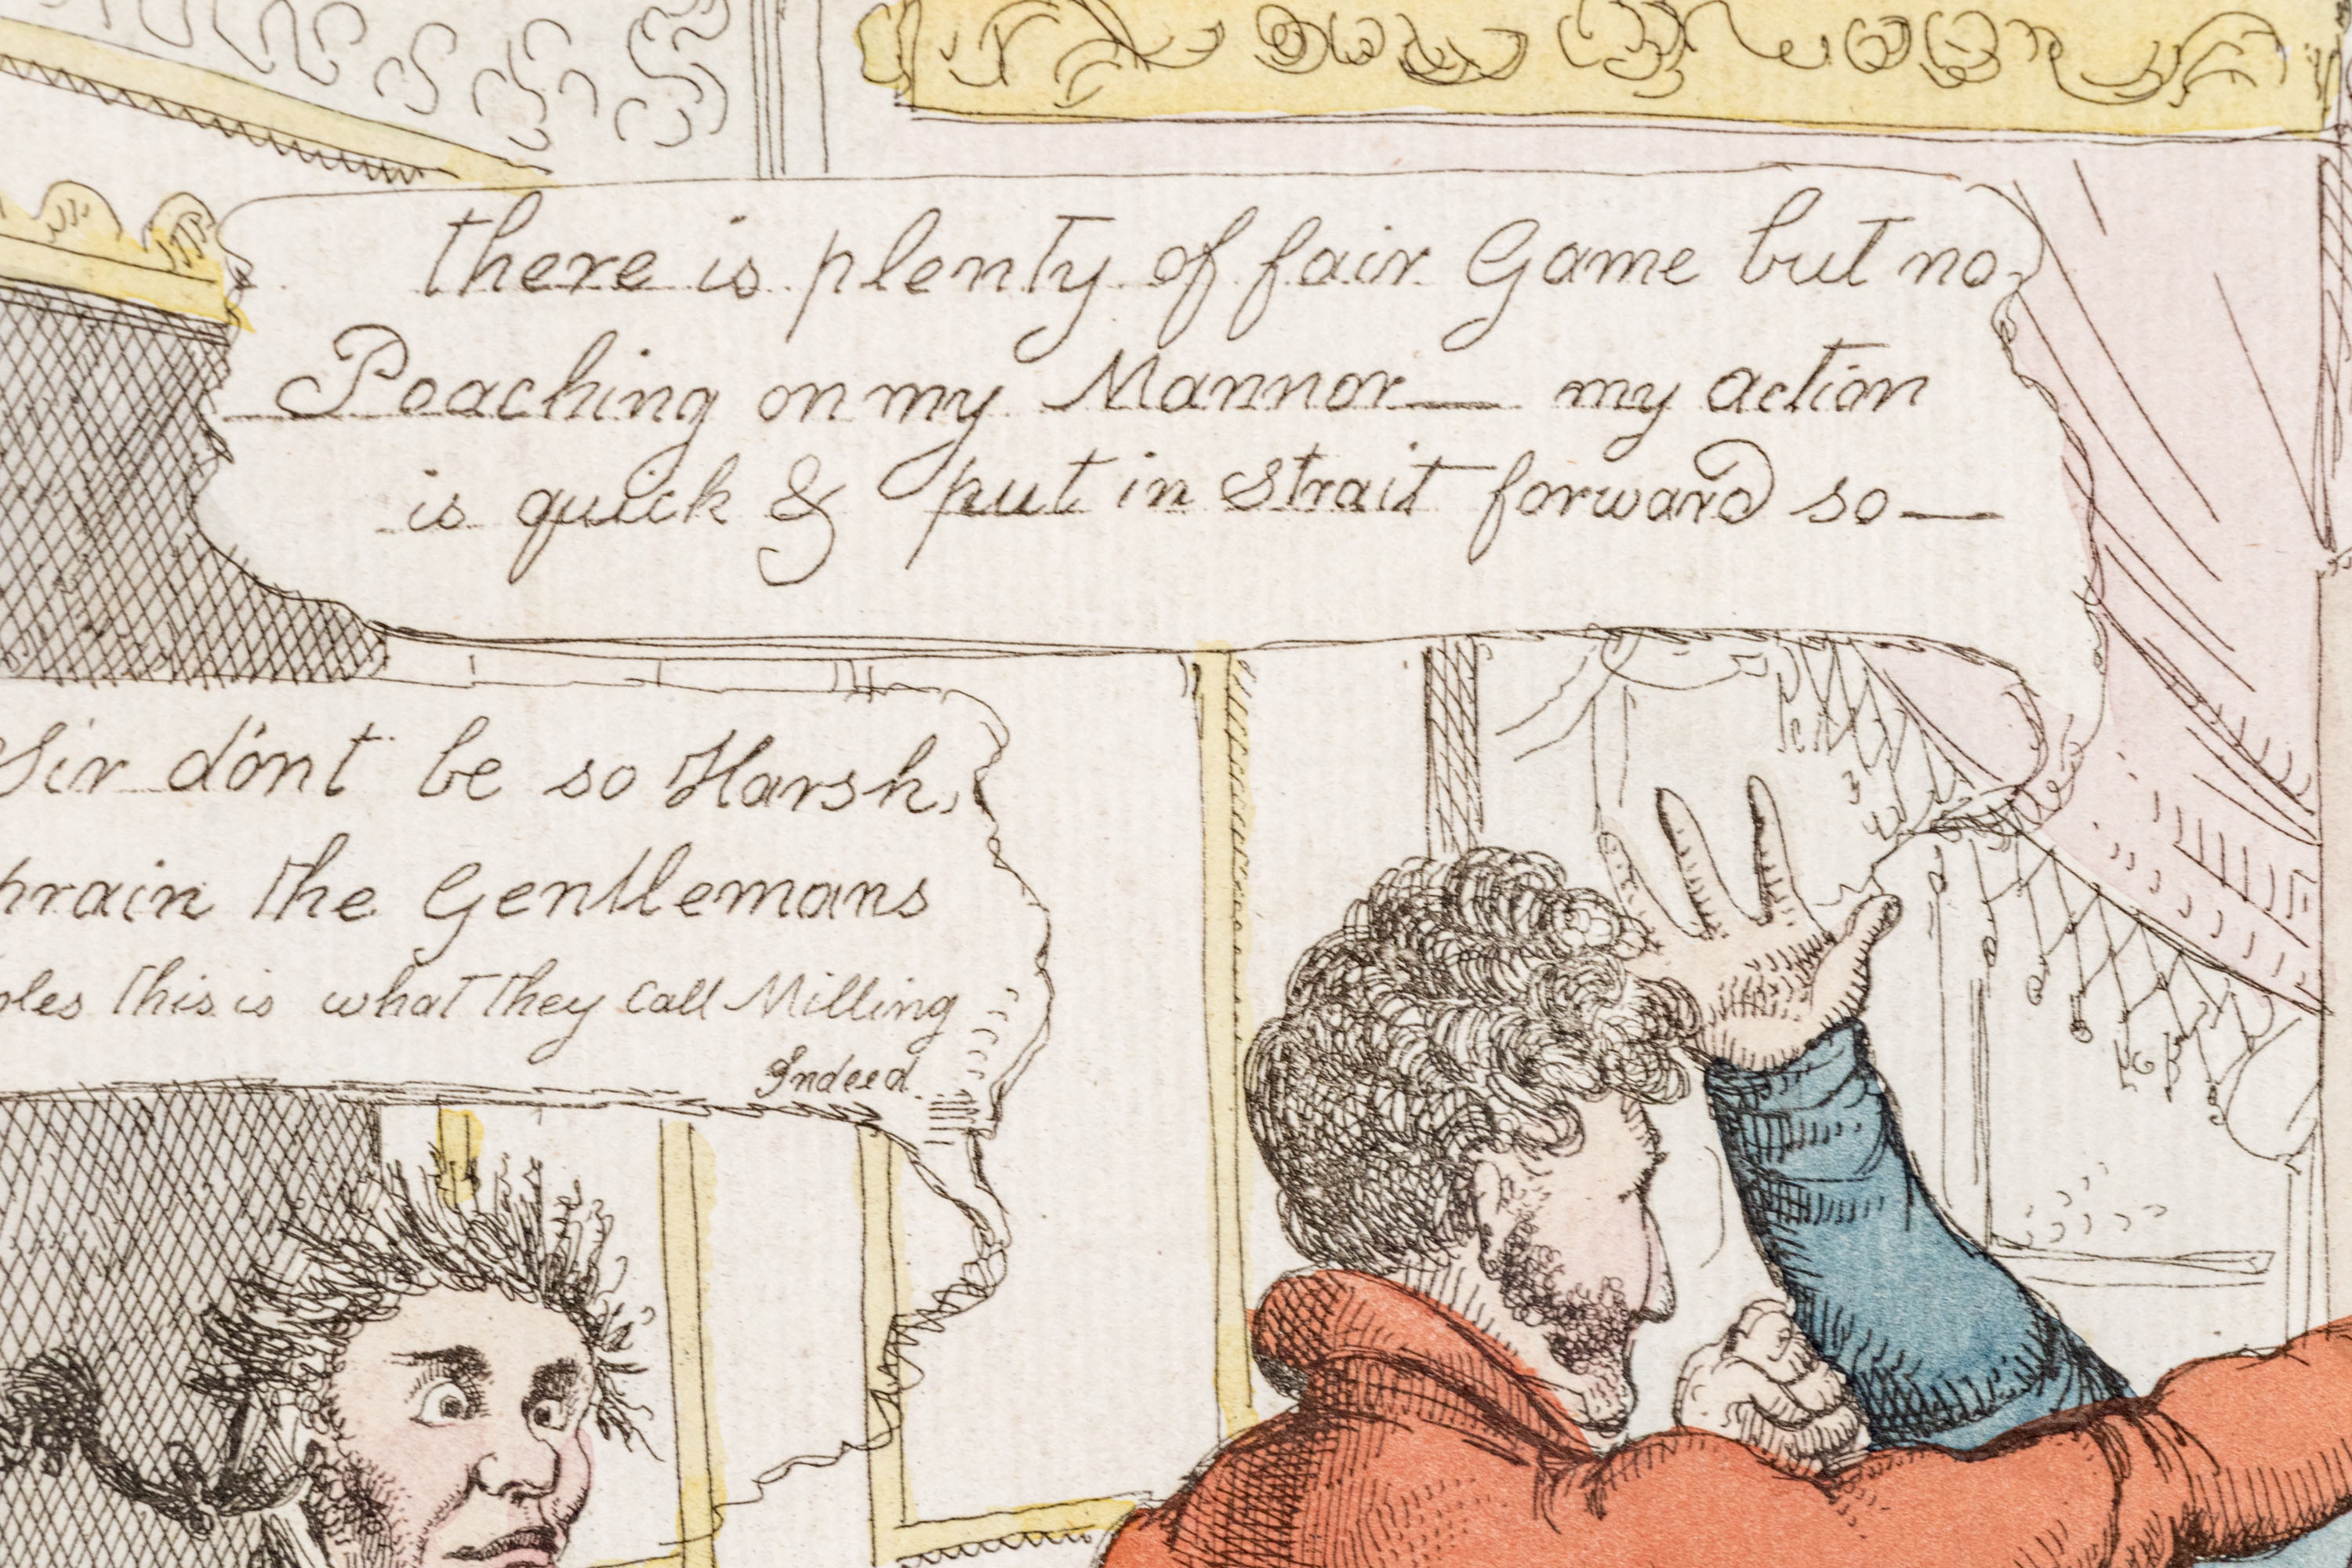 there is plenty of fair Game but no
Poaching on my Mannor — my action
is quick & put in strait forward so —
Sir d'ont be so Harsh,
the Gentlemans
this is what they call Milling
Indeed.